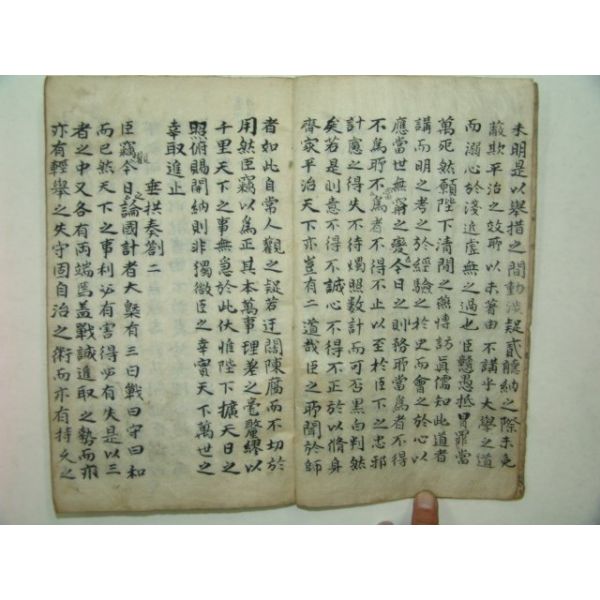 未明是以舉措之間動涉疑貳聽納之際未免
蔽欺平治之效所以未著由不講乎大學之道
而溺心於淺近虛無之過也臣戇愚抵冒罪當
萬死然願陛下清閒之燕博訪真儒知此道者
講而明之考之於經驗之於史而會之於心以
應當世無窮之變今日之則務所當為者不得
不為所不當為者不得不止以至於臣下之忠邪
計慮之得失不待燭照數計而可否黑白判然
矣若是則意不得不誠心不得不正於以脩身
齊家平治天下亦豈有二道哉臣之所聞於師
者如此自常人觀之疑若迂闊陳腐而不切於
用然臣竊以為正其本萬事理差之毫釐繆以
千里天下之事無急於此伏惟陛下擴天日之
照俯賜開納則非獨微臣之幸實天下萬世之
幸取進止
垂拱奏劄二
臣竊觀今日之論國計者大槩有三曰戰曰守曰和
而已然天下之事利必有害得必有失是以三
者之中又各有两端焉盖戰誠進取之勢而亦
亦有輕舉之失守固自治之術而亦有持久之